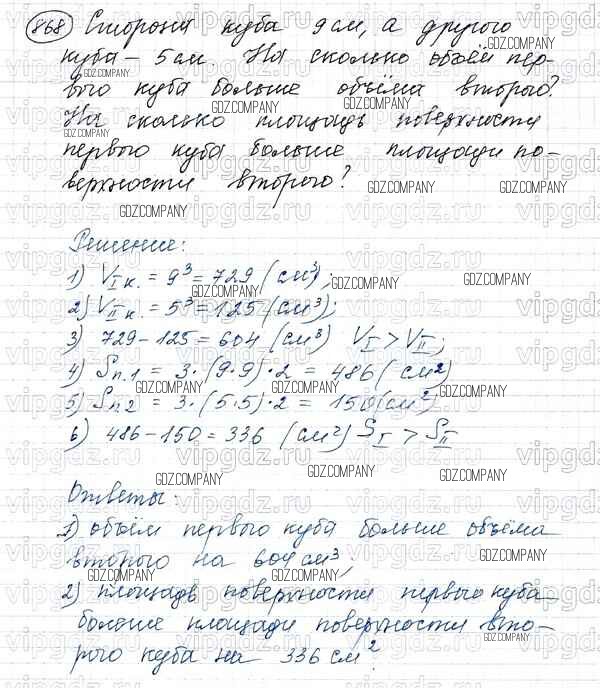 868 Сторона куба 9 см, а другого
куба – 5 см. На сколько объём пер-
вого куба больше объёма второго?
На сколько площадь поверхности
первого куба больше площади по-
верхности второго?
Решение:
1) V I к. = 9³ = 729 (см³);
2) V II к. = 5³ = 125 (см³);
3) 729 – 125 = 604 (см³) V I > V II;
4) Sп.1 = 3·(9·9)·2 = 486 (см²)
5) Sп2 = 3·(5·5)·2 = 150 (см²)
6) 486 – 150 = 336 (см²) S I > S II
Ответы:
1) объём первого куба больше объёма
второго на 604 см³,
2) площадь поверхности первого куба
больше площади поверхности вто-
рого куба на 336 см².
GDZ.COMPANY
vipgdz.ru